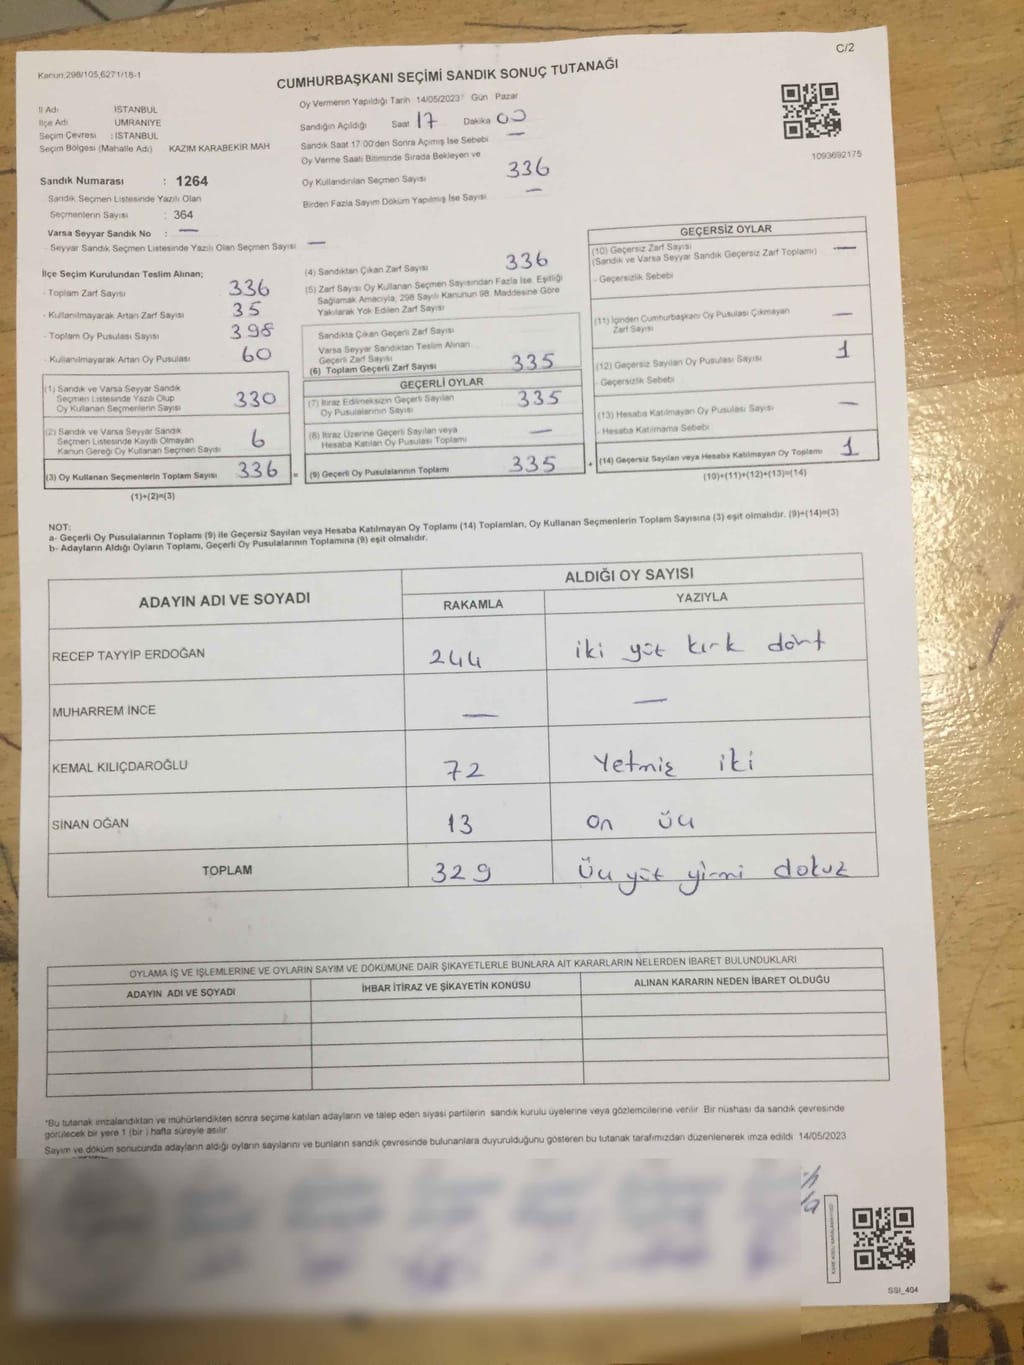 C/2
Kanun;298/105,6271/18-1
CUMHURBAŞKANI SEÇİMİ SANDIK SONUÇ TUTANAĞI
İl Adı İSTANBUL
İlçe Adı ÜMRANİYE
Seçim Çevresi : İSTANBUL
Seçim Bölgesi (Mahalle Adı) KAZIM KARABEKİR MAH
Sandık Numarası : 1264
Sandık Seçmen Listesinde Yazılı Olan
Seçmenlerin Sayısı : 364
Varsa Seyyar Sandık No : —
- Seyyar Sandık Seçmen Listesinde Yazılı Olan Seçmen Sayısı —
Oy Vermenin Yapıldığı Tarih 14/05/2023 Gün Pazar
Sandığın Açıldığı Saat 17 Dakika 00
Sandık Saat 17:00'den Sonra Açımış İse Sebebi —
Oy Verme Saati Bitiminde Sırada Bekleyen ve
Oy Kullandırılan Seçmen Sayısı 336
Birden Fazla Sayım Döküm Yapılmış İse Sayısı —
1093692175
İlçe Seçim Kurulundan Teslim Alınan;
- Toplam Zarf Sayısı : 336
- Kullanılmayarak Artan Zarf Sayısı : 35
- Toplam Oy Pusulası Sayısı : 398
- Kullanılmayarak Artan Oy Pusulası : 60
(1) Sandık ve Varsa Seyyar Sandık
Seçmen Listesinde Yazılı Olup
Oy Kullanan Seçmenlerin Sayısı 330
(2) Sandık ve Varsa Seyyar Sandık
Seçmen Listesinde Kayıtlı Olmayan
Kanun Gereği Oy Kullanan Seçmen Sayısı 6
(3) Oy Kullanan Seçmenlerin Toplam Sayısı 336
(1)+(2)=(3)
(4) Sandıktan Çıkan Zarf Sayısı 336
(5) Zarf Sayısı Oy Kullanan Seçmen Sayısından Fazla İse, Eşitliği
Sağlamak Amacıyla, 298 Sayılı Kanunun 98. Maddesine Göre
Yakılarak Yok Edilen Zarf Sayısı
Sandıkta Çıkan Geçerli Zarf Sayısı
Varsa Seyyar Sandıktan Teslim Alınan
Geçerli Zarf Sayısı
(6) Toplam Geçerli Zarf Sayısı 335
GEÇERLİ OYLAR
(7) İtiraz Edilmeksizin Geçerli Sayılan
Oy Pusulalarının Sayısı 335
(8) İtiraz Üzerine Geçerli Sayılan veya
Hesaba Katılan Oy Pusulası Toplamı —
= (9) Geçerli Oy Pusulalarının Toplamı 335
GEÇERSİZ OYLAR
(10) Geçersiz Zarf Sayısı
(Sandık ve Varsa Seyyar Sandık Geçersiz Zarf Toplamı) —
- Geçersizlik Sebebi
(11) İçinden Cumhurbaşkanı Oy Pusulası Çıkmayan
Zarf Sayısı —
(12) Geçersiz Sayılan Oy Pusulası Sayısı 1
- Geçersizlik Sebebi
(13) Hesaba Katılmayan Oy Pusulası Sayısı —
- Hesaba Katılmama Sebebi
+ (14) Geçersiz Sayılan veya Hesaba Katılmayan Oy Toplamı 1
(10)+(11)+(12)+(13)=(14)
NOT:
a- Geçerli Oy Pusulalarının Toplamı (9) ile Geçersiz Sayılan veya Hesaba Katılmayan Oy Toplamı (14) Toplamları, Oy Kullanan Seçmenlerin Toplam Sayısına (3) eşit olmalıdır. (9)+(14)=(3)
b- Adayların Aldığı Oyların Toplamı, Geçerli Oy Pusulalarının Toplamına (9) eşit olmalıdır.
ADAYIN ADI VE SOYADI
ALDIĞI OY SAYISI
RAKAMLA YAZIYLA
RECEP TAYYİP ERDOĞAN 244 iki yüz kırk dört
MUHARREM İNCE — —
KEMAL KILIÇDAROĞLU 72 Yetmiş iki
SİNAN OĞAN 13 on üç
TOPLAM 329 Üç yüz yirmi dokuz
OYLAMA İŞ VE İŞLEMLERİNE VE OYLARIN SAYIM VE DÖKÜMÜNE DAİR ŞİKAYETLERLE BUNLARA AİT KARARLARIN NELERDEN İBARET BULUNDUKLARI
ADAYIN ADI VE SOYADI İHBAR İTİRAZ VE ŞİKAYETİN KONUSU ALINAN KARARIN NEDEN İBARET OLDUĞU
*Bu tutanak imzalandıktan ve mühürlendikten sonra seçime katılan adayların ve talep eden siyasi partilerin sandık kurulu üyelerine veya gözlemcilerine verilir. Bir nüshası da sandık çevresinde
görülecek bir yere 1 (bir ) hafta süreyle asılır.
Sayım ve döküm sonucunda adayların aldığı oyların sayılarını ve bunların sandık çevresinde bulunanlara duyurulduğunu gösteren bu tutanak tarafımızdan düzenlenerek imza edildi 14/05/2023
SSI_404